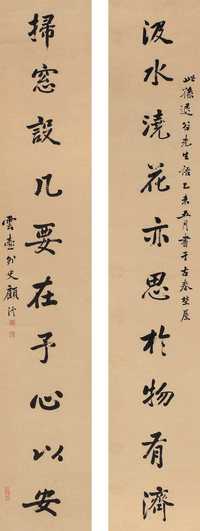 汲水澆花亦思於物有濟
此孫退谷先生語乙未五月書于古春草屋
掃窓設几要在予心以安
雲壺外史顧沄